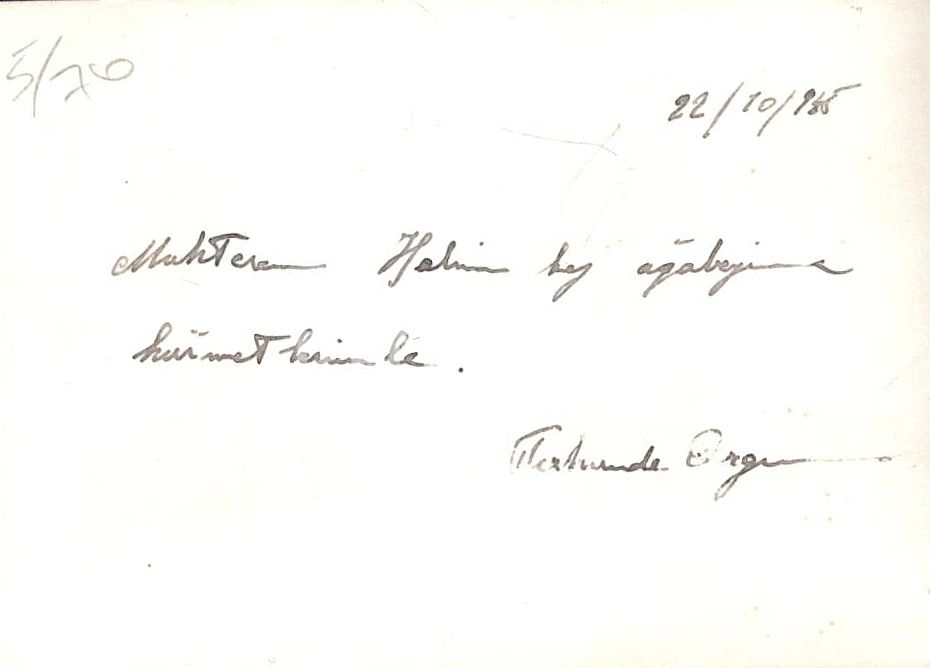 5/70
22/10/955
Muhterem Halim bey ağabeyime
hürmetlerimle.
Ferhunde Orgun